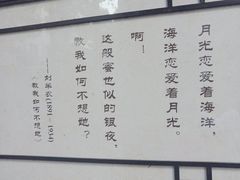 月光恋爱着海洋，
海洋恋爱着月光。
啊！
这般蜜也似的银夜，
教我如何不想她？
——刘半农(1891－1934)
《教我如何不想她》